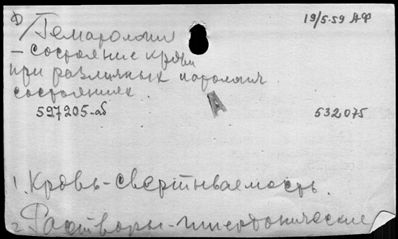 Ф/Гематологии 19/5.59 АФ
- состояние крови
при различных патологич.
состояниях.
597205-аб 532075
1. Кровь-свертываемость.
2. Растворы-гипертонические